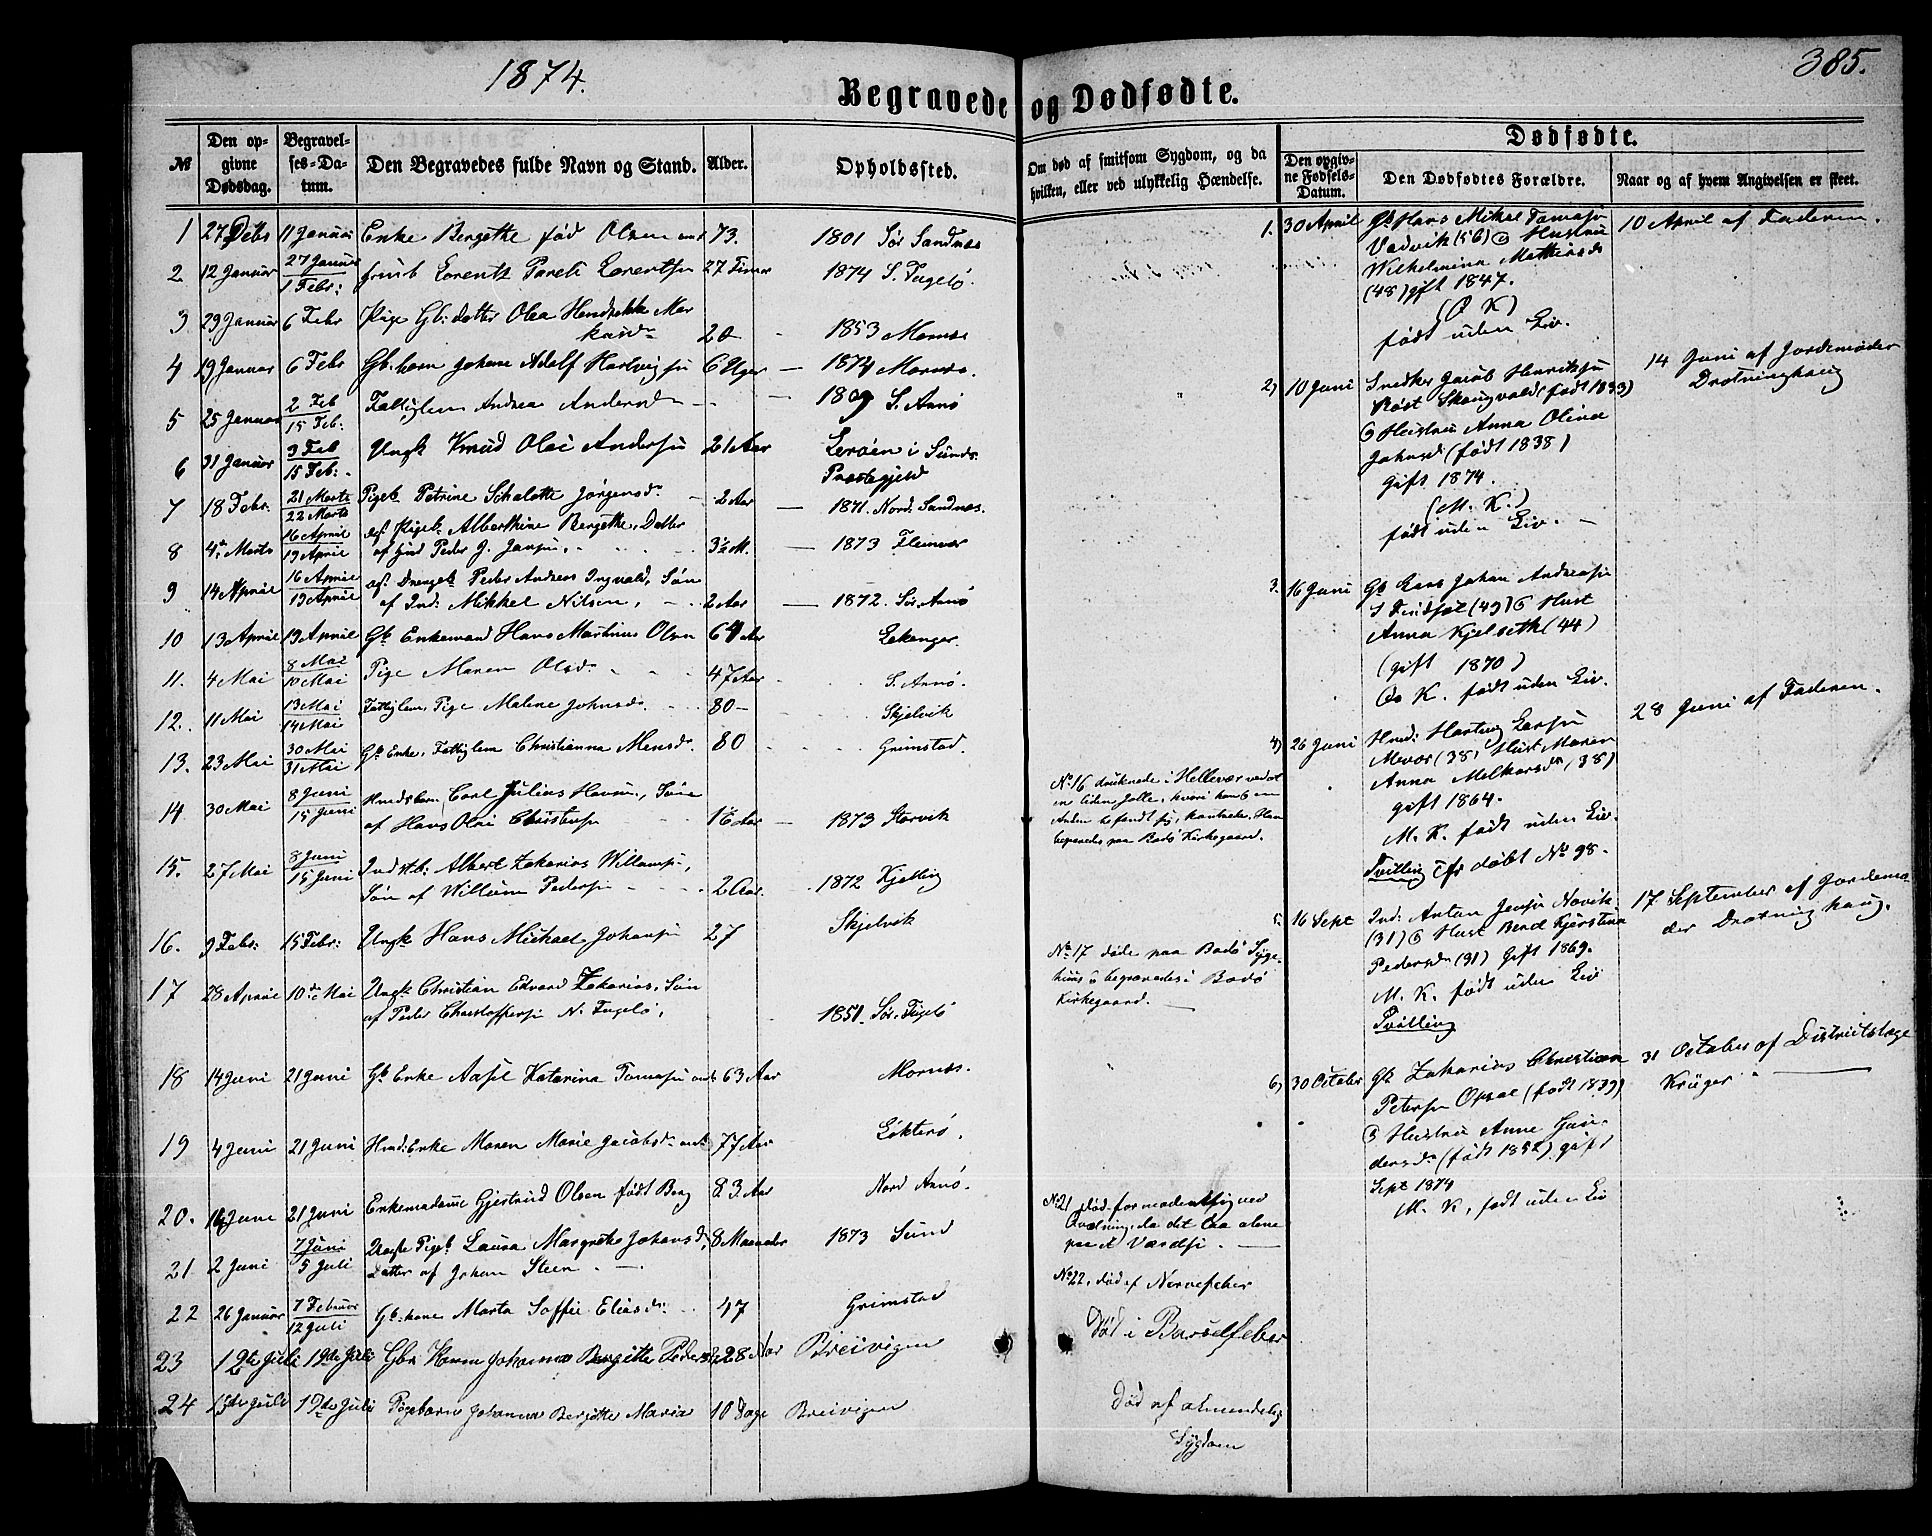 1874.
385.
Begravede og Dødfødte.
№
Den opgivne Dødsdag.
Begravelses-Datum.
Den Begravedes fulde Navn og Stand.
Alder.
Opholdssted.
Om død af smitsom Sygdom, og da hvilken, eller ved ulykkelig Hændelse.
Dødfødte.
Den opgivne Fødsels-Datum.
Den Dødfødtes Forældre.
Naar og af hvem Angivelsen er skeet.
1 27 Debr 11 Januar Enke Bergethe fød Olsen 73. 1801 Sør Sandnes
2 12 Januar 27 Januar 1 Febr: Lorents Lorentsen 27 Timer 1874 S. Fugelø
3 29 Januar 6 Febr Pige Gb: datter Olea Hendrikke 20 1853 Mornes
4 19 Januar 6 Febr Gb. barn Johan Adolf Hartvigsn 6 Uger — 1874 Mornes.
5 25 Januar 2 Feb 15 Feb. Fattiglem Andrea Andersd — 1809 S. Arnø
6 31 Januar 3 Feb 15 Feb. Ungk Knud Olai Andersn 21 Aar Lerøen i Sunds Præstegjeld
7 18 Febr. 21 Marts 22 Marts Pigeb. Petrine Schalotte Jørgensd. 2 Aar — 1871. Nord. Sandnes.
8 4de Marts 16 April 19 April Pigeb. Alberthine Bergethe, Datter
af Ind Peder J. Jansn. 3½ M. — 1873 Fleinvær
9 14 April 16 April 19 April Drengeb. Peder Andreas Ingvald, Søn
af Ind: Mikkel Nilsen, 2 Aar — 1872. Sør. Arnø
10 13 April 19 April Gb. Enkemand Hans Martinus Olsn 64 Aar Lekanger.
11. 4 Mai 8 Mai 10 Mai Pige Maren Olsd. 47 Aar S. Arnø.
12. 11 Mai 13 Mai 14 Mai Fattiglem, Pige Malene Johnsd. 80 — Skjelvik
13. 23 Mai 30 Mai 31 Mai Gb. Enke, Fattiglem Christianna Mensd. 80 Grimstad.
14. 30 Mai 8 Juni 15 Juni Carl Julius Søn
af Hans Olai 1873 Storvik
15. 27 Mai 8 Juni 15 Juni Albert Zakarias Willumsn,
Søn af Willum Pedersn 2 Aar. 1872 Kjelling
16. 9 Febr: 15 Febr: Ungk Hans Michael Johansn 27 Skjelvik
17 28 April 10de Mai Ungk. Christian Edvard Zakarias, Søn
af Peder Christoffersn N. Fugelø, 1851. Sør. Fugelø
18 14 Juni 21 Juni Gb Enke Aasel Katarina 63 Aar Mornes.
19 4 Juni 21 Juni Enke Maren Marie Jacobsd. 77 Aar
20. 16 Juni 21 Juni Enkemadame Gjertrud Olsen født Berg 83 Aar Nord Arnø.
21 2 Juni 7 Juni 5 Juli Pigeb. Laura Margrethe Johansd, 8 Maaneder 1873 Sund
Datter af Johan Steen.
22 26 Januar 7 Februar 12 Juli Gb. kone Marta Soffie Eliasd. 47 Grimstad
23 12te Juli 19de Juli Gbr Johanna Bergitte 28 Aar Breivigen
24 15de Juli 19de Juli Pigebarn Johanna Bergitte Maria 10 Dage Breivigen
No 16 druknede i Hellevær ved at
en liden Jolle, hvori han og en
Anden befandt sig, kantrede. Han
begravedes paa Bodø Kirkegaard.
No 17 døde paa Bodø Syge-
huus & begravedes i Bodø
Kirkegaard. —
No 21 død formodentlig ved
Qvælning, da det laa alene
No 22, død af Nervefeber
Død i Barselfeber
Død af almindelig
Sygdom
1. 30 April Gb Hans Mikal
Vadvik (56) & Hustru
Wilhelmina
(48) gift 1847.
født uden Liv.
10 April af Faderen.
2) 10 Juni Snedker Jacob Henriksn
Røst (født 1833)
& Hustru Anna Olina
Johnsd. (født 1838)
gift 1874.
(M. K.)
født uden Liv. —
14 Juni af Jordemoder
Drotninghaug
3. 16 Juni Gb Johan Andreasn
(49) & Hust
Anna Kjelseth (44)
(gift 1870)
K. født uden Liv.
4) 26 Juni Hartvig Larsn
Mevær (38) Hust Maren
Anna Melkorsd. (38)
gift 1864.
M. K. født uden Liv.
Tvilling cfr døbt No 98.
28 Juni af Faderen.
5. 16 Sept Ind: Anton Jensn
(31) & Hust Berit
Pedersd. (31) gift 1869.
M. K. født uden Liv
Tvilling
17 September af Jordemo-
der Drotninghaug.
6) 30 October Gb Zakarias Christian
Petersn Opsal (født 1839)
& Hustru Anne
(født 1852) gift
Sept 1874
M. K, født uden Liv
31 October af Districtslæge
Krüger —